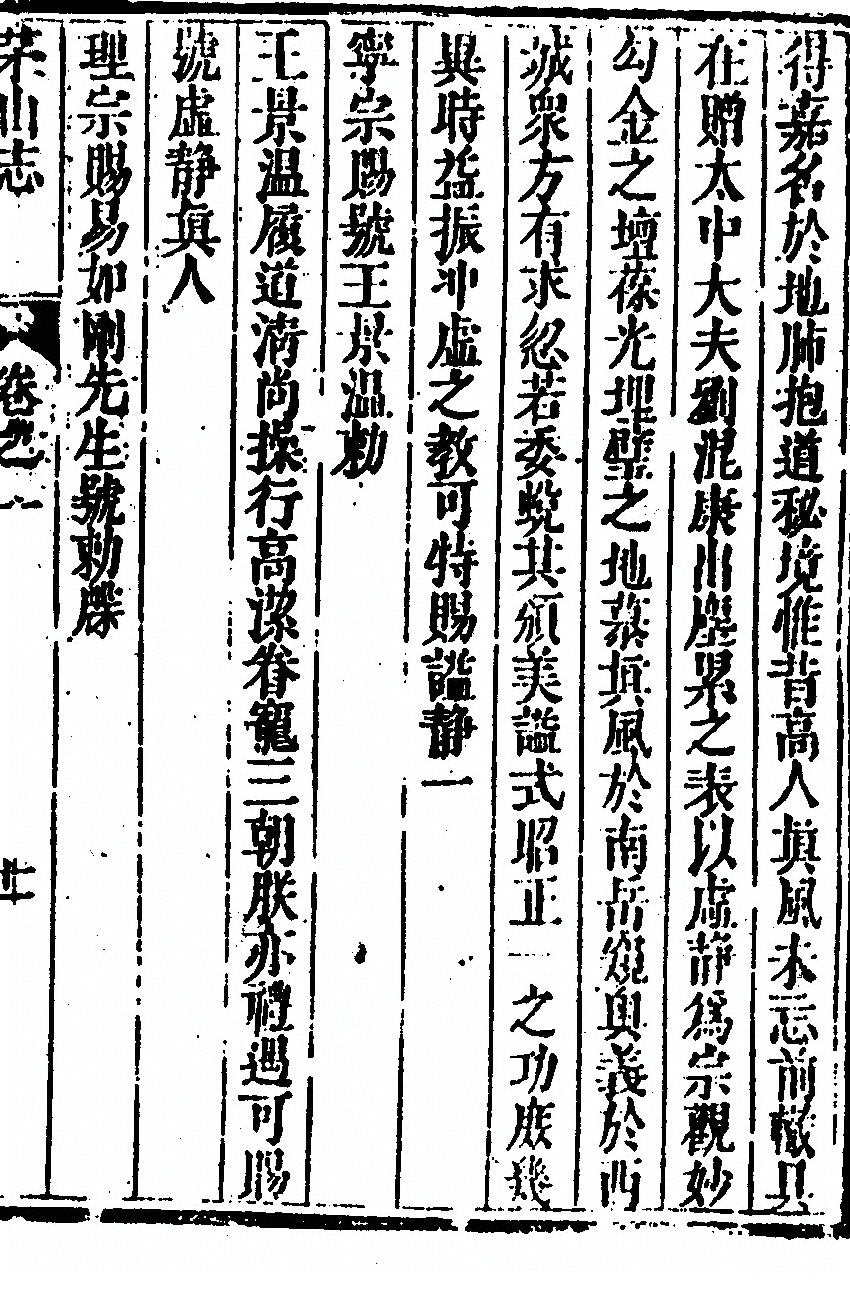 得嘉名於地肺抱道秘境惟昔高人填風未忘前轍具
在贈太中大夫劉混康出塵累之表以虛静爲宗觀妙
勾金之壇葆光埋璧之地慕真風於南岳窺奥義於西
城衆方有求忽若委蛻其頒美謚式昭正一之功庶幾
異時益振冲虛之教可特賜謚静一
寧宗賜號王景温勅
王景温履道清尚操行高潔眷寵三朝朕亦禮遇可賜
號虛静真人
理宗賜易如剛先生號勅牒
茅山志
卷之一